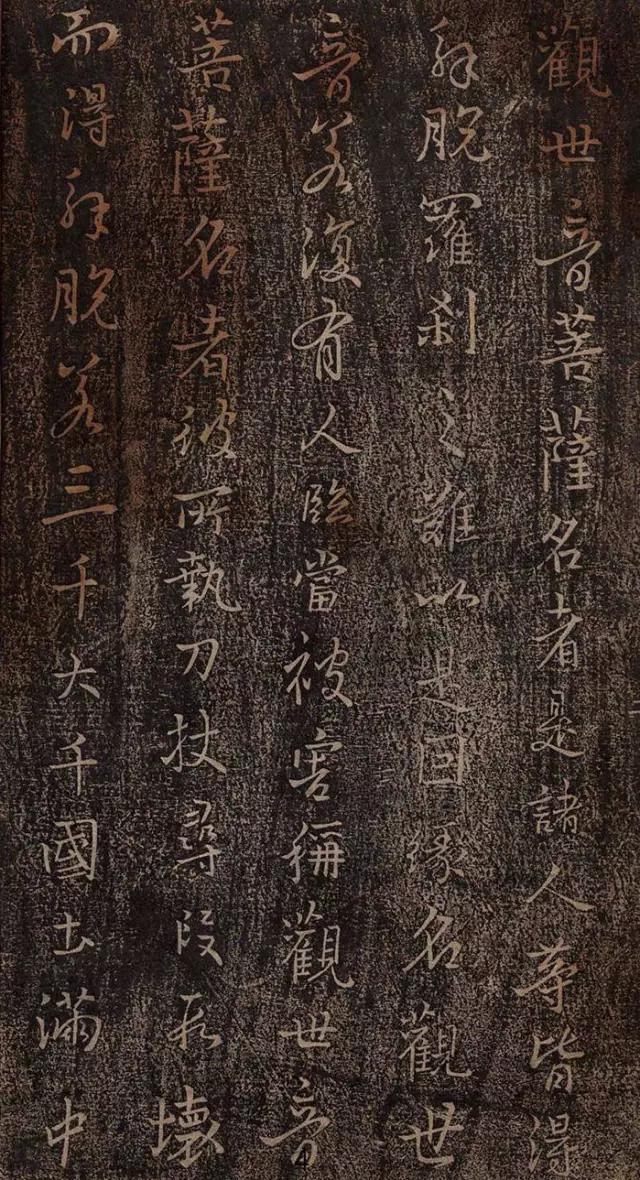 觀世音菩薩名者是諸人等皆得
解脫羅刹之難以是因緣名觀世
音若復有人臨當被害稱觀世音
菩薩名者彼所執刀杖尋段段壞
而得解脫若三千大千國土滿中
4